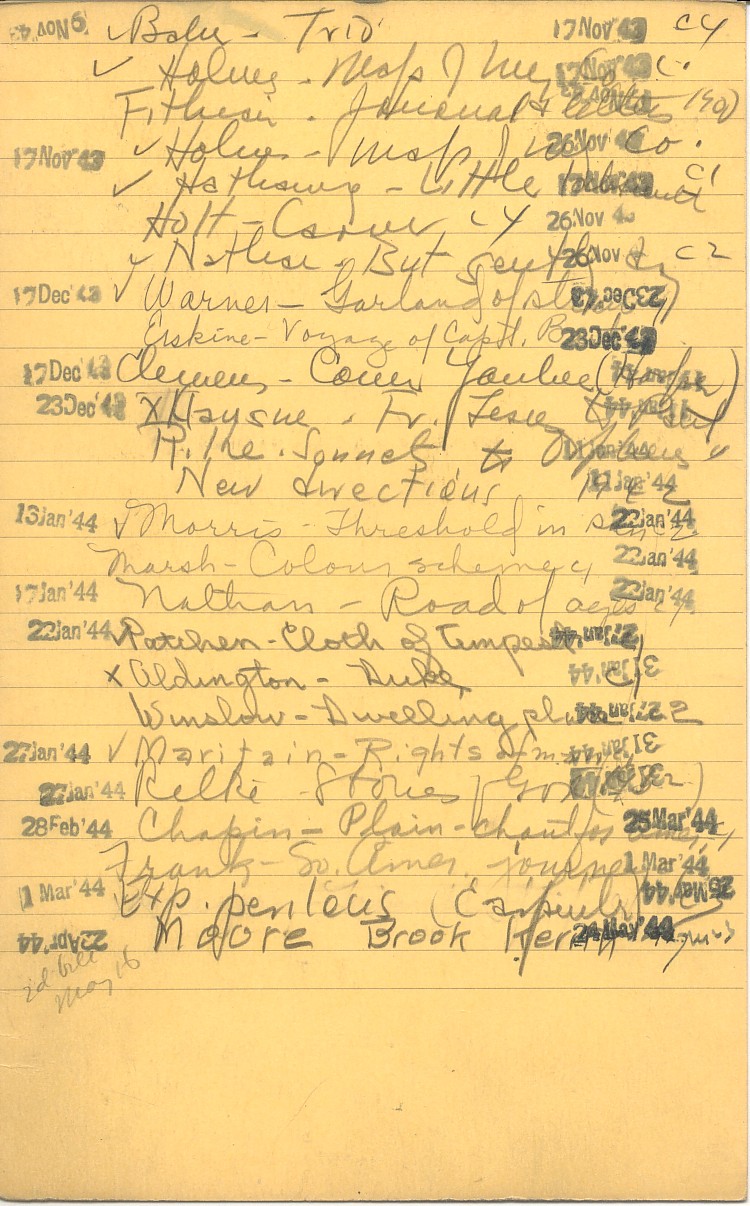 9 Nov 43 ✓ Baker - Trio 17 Nov 43 c4
✓ Holmes - Map of My Co. 17 Nov 43 c.
Fithian. Journal & letters 190
17 Nov '43 ✓ Holmes - Map of my Co. 26 Nov 4
✓ Hathaway - Little c1
Holt - c4 26 Nov 4
✓ Nathan - But gently day 26 Nov 4 c2
17 Dec '43 ✓ Warner - Garland of straw 23 Dec '43
Erskine - Voyage of Capt. B 23 Dec '43
17 Dec '43 Clemens - Conn Yankee
23 Dec '43 X Haysne. Fr. Jesu
Rilke. Sonnet to Orpheus 11 Jan '44
New directions 11 Jan '44
13 Jan '44 ✓ Morris - Threshold in 22 Jan '44
Marsh - Colour scheme 22 Jan '44
17 Jan '44 Nathan - Road of ages 22 Jan '44
22 Jan '44 ✓ Patchen - Cloth of tempest 27 Jan '44
x Aldington - Duke 31 Jan '44
Winslow - Dwelling place 27 Jan '44 2
27 Jan '44 ✓ Maritain - Rights of man 31 Jan '44
27 Jan '44 Rilke - Stories of God
28 Feb '44 Chapin - Plain-chant for Amer. 25 Mar '44
Frank - So. Amer. journey 1 Mar '44
1 Mar '44 Exp. perilous (Carpenter) 25 Mar '44
22 Apr '44 Moore Brook Kerith 24 May '44
2d bill
May 16